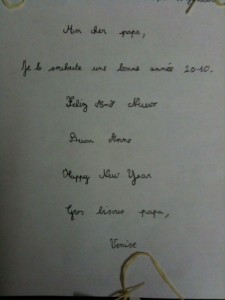 Mon cher papa,
Je te souhaite une bonne année 2010.
Feliz Año Nuevo
Buon Anno
Happy New Year
Gros bisous papa,
Venise